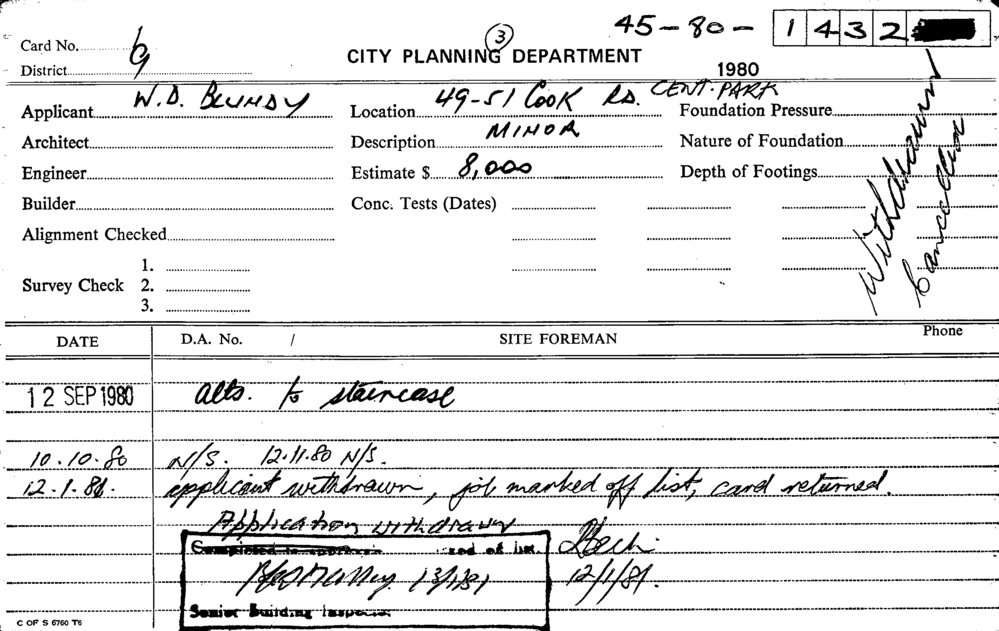 45-80- 1432
Card No. 6
3
CITY PLANNING DEPARTMENT
District
1980
Applicant W.D. BLUNDY
Location 49-51 COOK RD. CENT. PARK
Foundation Pressure
Architect
Description MINOR
Nature of Foundation
Engineer
Estimate $ 8,000
Depth of Footings
Builder
Conc. Tests (Dates)
Alignment Checked
Survey Check 1.
2.
3.
Withdrawn
Cancelled
DATE D.A. No. / SITE FOREMAN Phone
12 SEP 1980 alts. to staircase
10.10.80 N/S. 12.11.80 N/S.
12.1.81. applicant withdrawn, job marked off list, card returned.
Application withdrawn
Completed to approval
and of list.
13/1/81
12/1/81.
Senior Building Inspector
C OF S 6760 T6